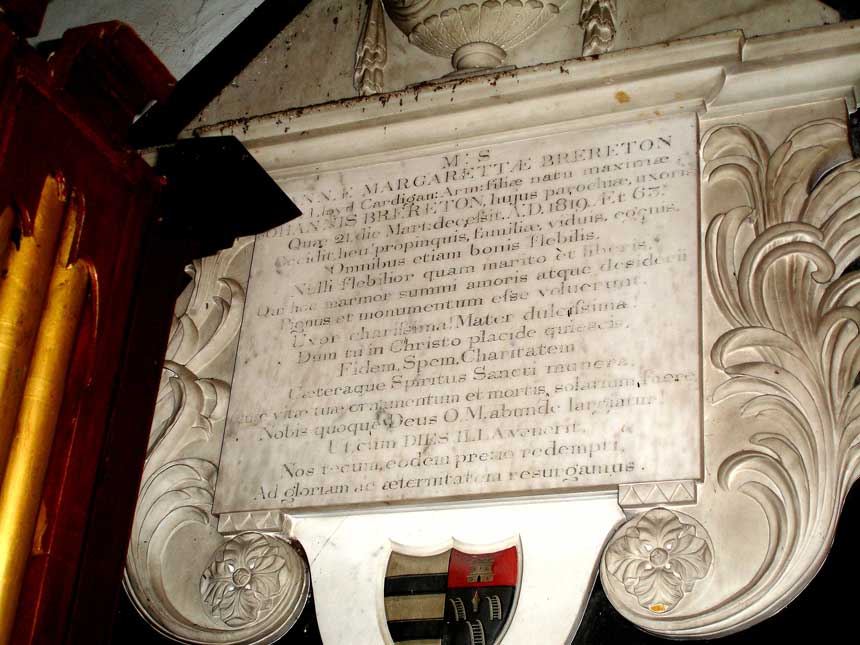 M: S
ANNÆ MARGARETTÆ BRERETON
Lloyd Cardigan: Arm: filiæ natu maximæ
JOHANNIS BRERETON, hujus parochiæ, uxoris
Quæ 21. die Mart: decessit. A.D. 1819. Æt 63.
Occidit, heu! propinquis, familiæ, viduis, egenis.
Omnibus etiam bonis flebilis.
Nulli flebilior quam marito et liberis,
Qui hoc marmor summi amoris atque desiderii
Pignus et monumentum esse voluerunt.
Uxor charissima! Mater dulcissima!
Dum tu in Christo placide quiescis,
Fidem, Spem, Charitatem
Cæteraque Spiritus Sancti munera,
vitæ tuæ ornamentum et mortis, solatium, fuere,
Nobis quoque Deus O.M. abunde largiatur!
Ut cum DIES ILLA venerit,
Nos tecum, eodem pretio redempti,
Ad gloriam ac æternitatem resurgamus.